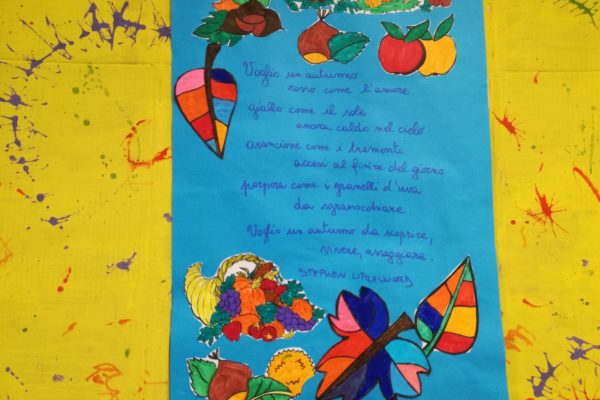 Voglio un autunno
rosso come l'amore
giallo come il sole
ancora caldo nel cielo
arancione come i tramonti
accesi al finire del giorno
porpora come i granelli d'uva
da sgranocchiare.
Voglio un autunno da scoprire,
vivere, assaggiare.
STEPHEN LITTLEWORD